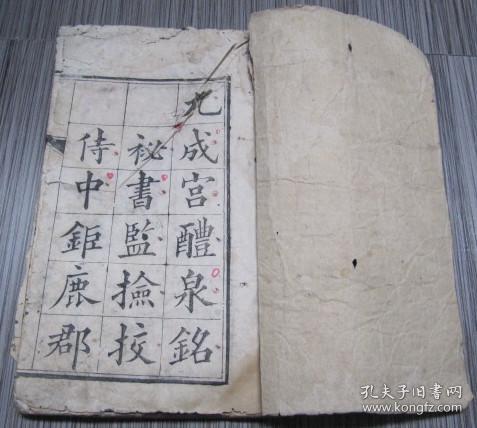 九成宮醴泉銘
祕書監撿挍
侍中鉅鹿郡
孔夫子旧书网
www.kongfz.com